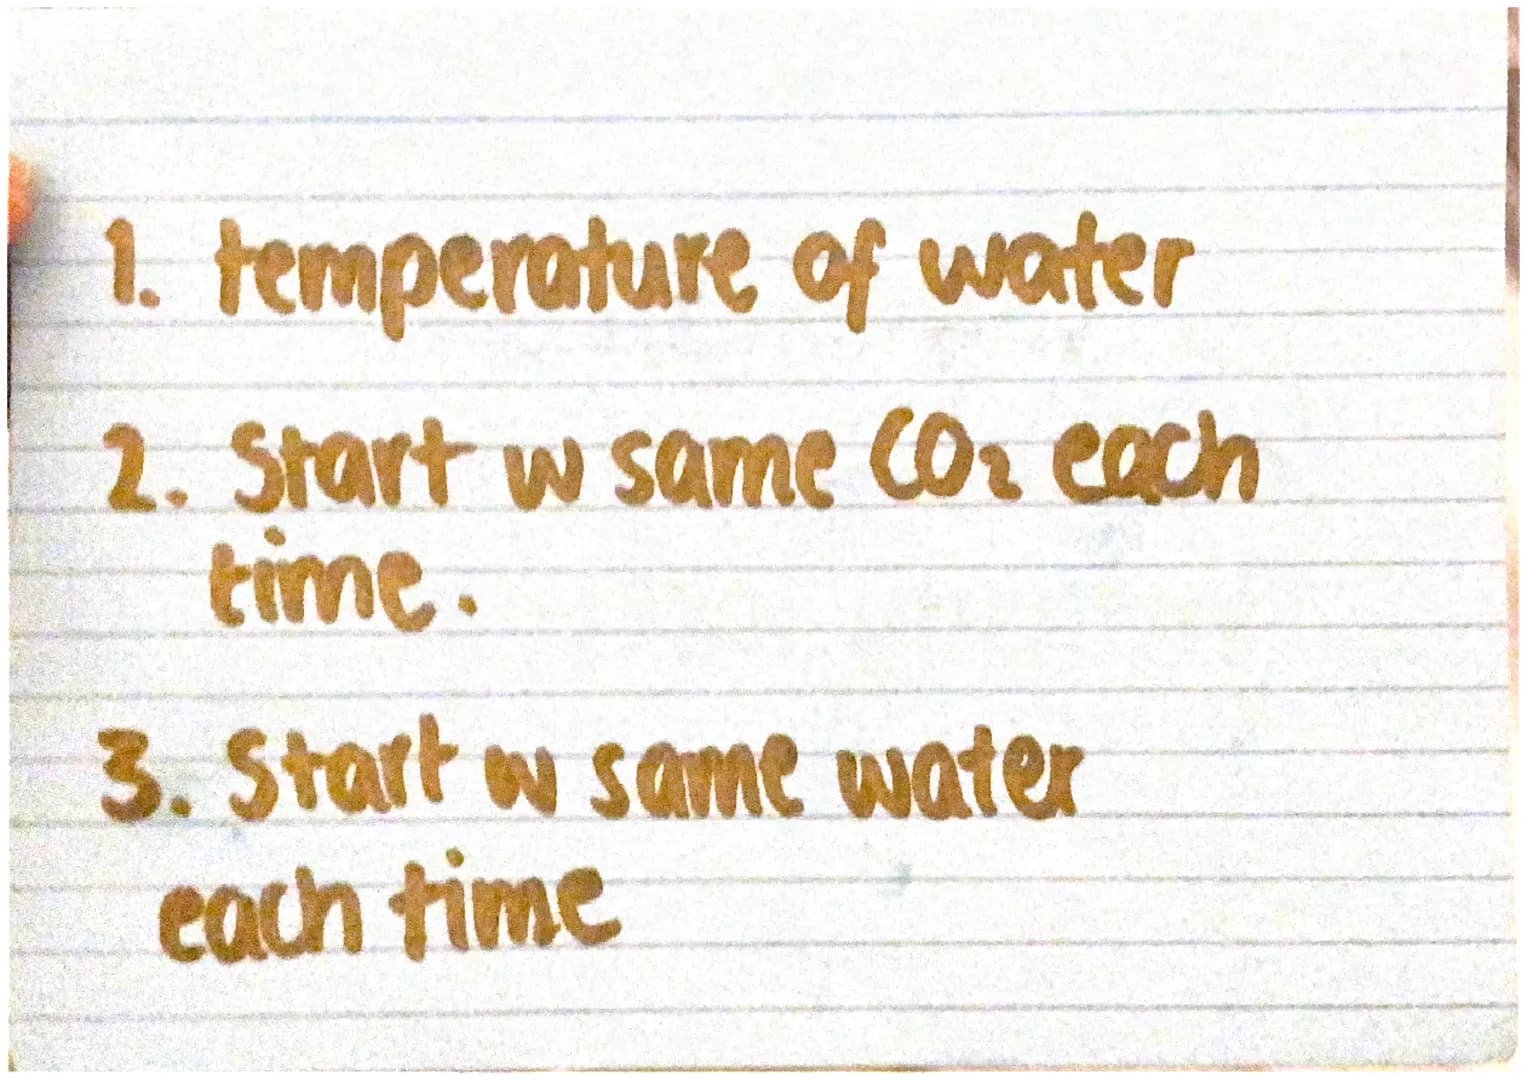 1. temperature of water
2. Start w same CO₂ each
time.
3. Start w same water
each time